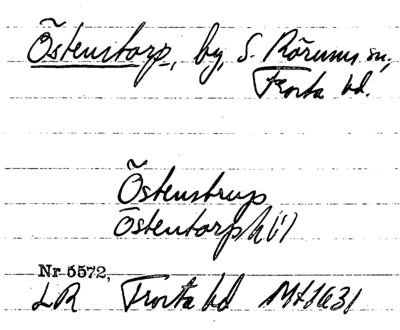 Östenstorp, by, S. Rörums sn,
Frosta hd.
Östenstrup
Östentorp
Nr 5572,
LR Frosta hd 1631